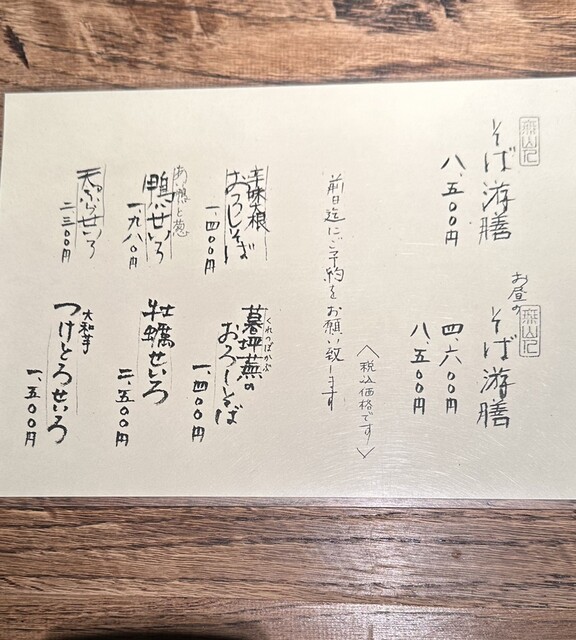 そば游膳
八、五〇〇円
お昼の
そば游膳
四、六〇〇円
八、五〇〇円
前日迄にご予約をお願い致します
〈税込価格です〉
辛味大根
おろしそば
一、四〇〇円
くれつぼかぶ
暮坪蕪の
おろしそば
一、四〇〇円
鴨せいろ
一、九八〇円
牡蠣せいろ
二、五〇〇円
天ぷらせいろ
二、三〇〇円
大和芋
つけとろせいろ
一、五〇〇円